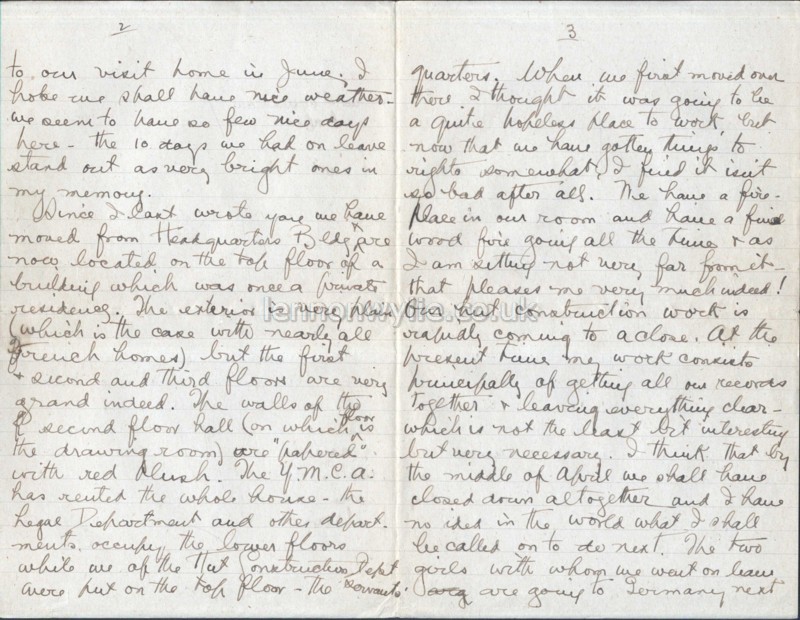 2
to our visit home in June. I
hope we shall have nice weather -
we seem to have so few nice days
here - the 10 days we had on leave
stand out as very bright ones in
my memory.
Since I last wrote you we have
moved from Headquarters Bldg & are
now located on the top floor of a
building which was once a private
residence. The exterior is very plain
(which is the case with nearly all
French homes) but the first
& second and third floors are very
grand indeed. The walls of the
second floor hall (on which floor is
the drawing room) are "papered"
with red plush. The Y.M.C.A.
has rented the whole house - the
Legal Department and other depart-
ments occupy the lower floors
while we of the Hut Construction Dept
were put on the top floor - the "servants'
3
quarters. When we first moved over
there I thought it was going to be
a quite hopeless place to work, but
now that we have gotten things to
rights somewhat, I find it isn't
so bad after all. We have a fire-
place in our room and have a fine
wood fire going all the time & as
I am sitting not very far from it -
that pleases me very much indeed!
Our hut construction work is
rapidly coming to a close. At the
present time my work consists
principally of getting all our records
together & leaving everything clear -
which is not the least bit interesting
but very necessary. I think that by
the middle of April we shall have
closed down altogether and I have
no idea in the world what I shall
be called on to do next. The two
girls with whom we went on leave
are going to Germany next
lennonwylie.co.uk